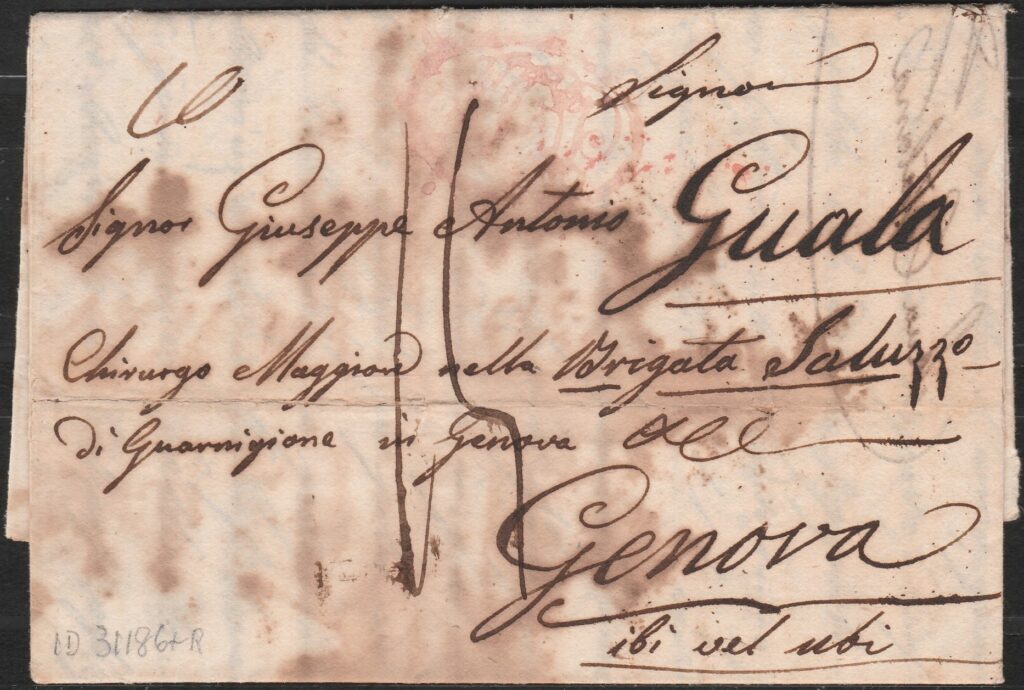 Signor
Signor Giuseppe Antonio Guala
Chirurgo Maggiore nella Brigata Saluzzo
di Guarnigione in Genova
Genova
ibi vel ubi
ID 31186+R